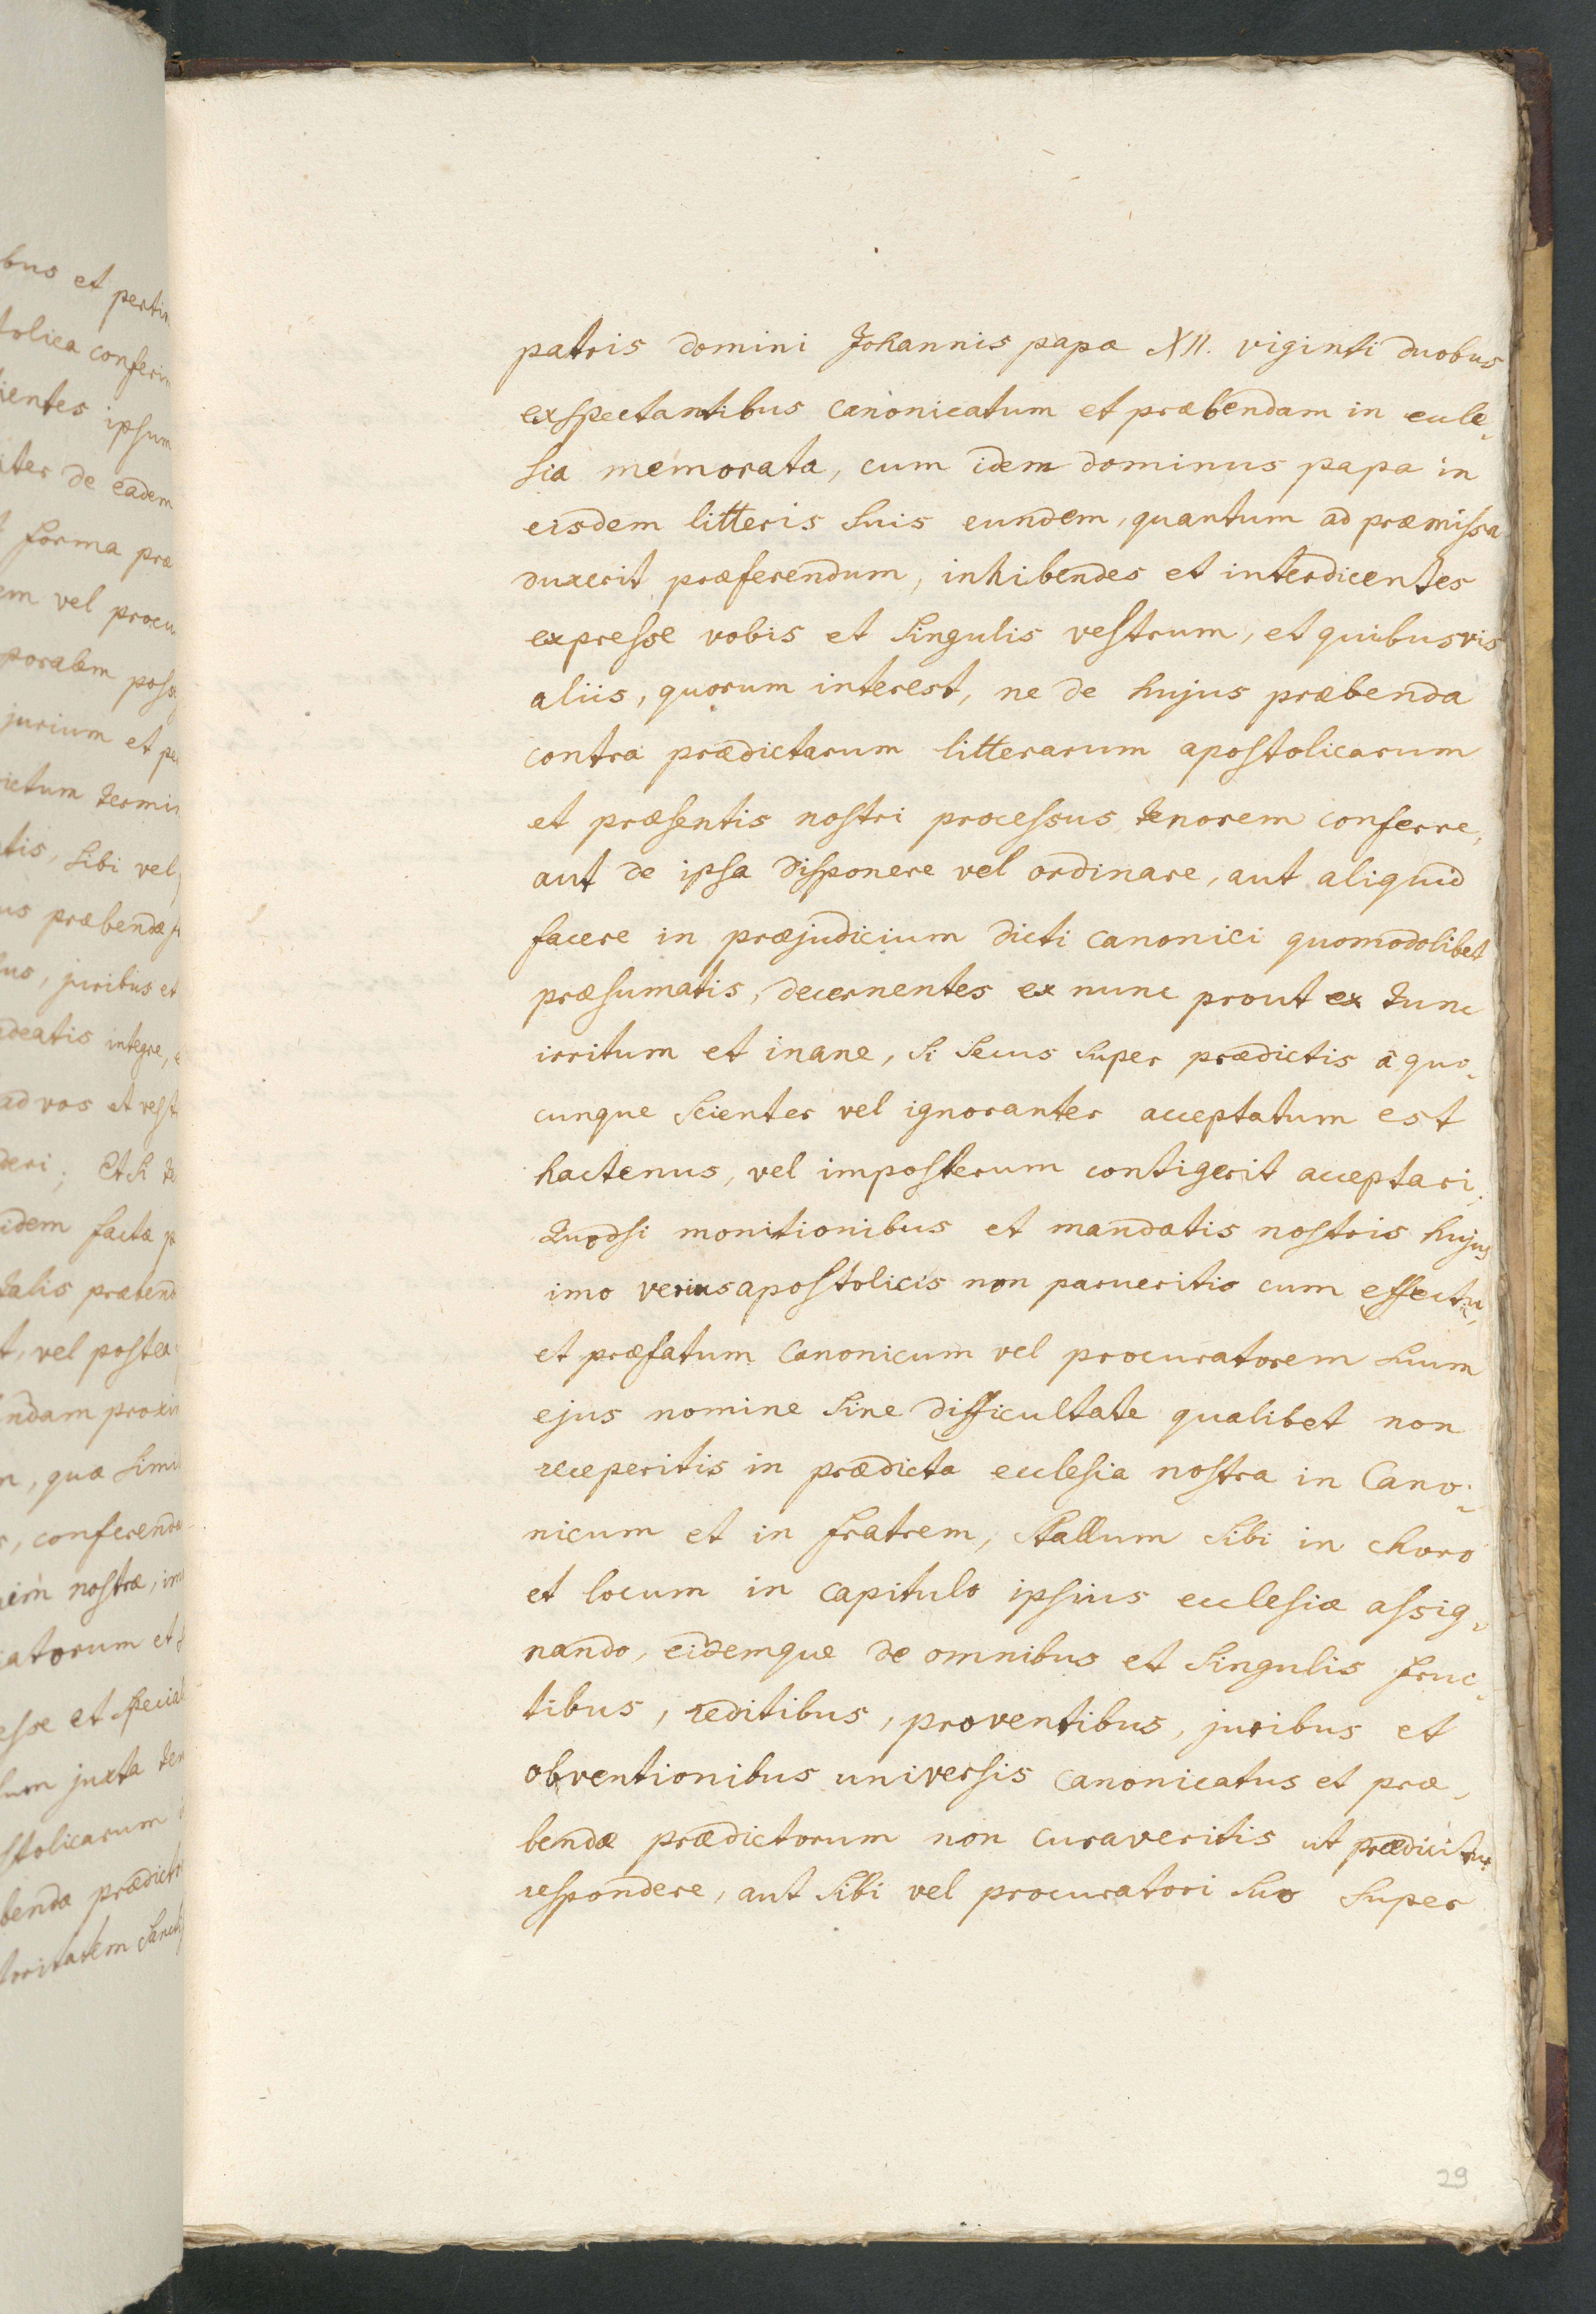 bus et pertin
tolica conferim
ientes ipsum
iter de eadem
forma præ
em vel procu
poralem poss
jurium et pe
ictum termin
tis, sibi vel
us præbendæ f
us, juribus et
deatis integre, e
ad vos et vest
deri; Et si te
idem facta p
talis prætend
t, vel postea
ndam proxim
n, quæ simi
r, conferenda
nostræ, im
atorum et s
esse et special
sum juxta ten
stolicarum
benda prædict
toritatem Sancti
patris domini Johannis papæ XII. viginti duobus
exspectantibus canonicatum et præbendam in eccle-
sia memorata, cum idem dominus papa in
eisdem litteris suis eundem, quantum ad præmissa
duxerit præferendum, inhibendes et interdicentes
expresse vobis et singulis vestrum, et quibusvis
aliis, quorum interest, ne de hujus præbenda
contra prædictarum litterarum apostolicarum
et præsentis nostri processus tenorem conferre,
aut de ipsa disponere vel ordinare, aut aliquid
facere in præjudicium dicti canonici quomodolibet
præsumatis, decernentes ex nunc prout ex tunc
irritum et inane, si secus super prædictis à quo-
cunque scienter vel ignoranter acceptatum est
hactenus, vel imposterum contigerit acceptari.
Quodsi monitionibus et mandatis nostris hujus
imo verius apostolicis non parueritis cum effectu,
et præfatum Canonicum vel procuratorem suum
ejus nomine sine difficultate qualibet non
receperitis in prædicta ecclesia nostra in Cano-
nicum et in fratrem, stallum sibi in choro
et locum in capitulo ipsius ecclesiæ assig-
nando, eidemque de omnibus et singulis fruc-
tibus, reditibus, proventibus, juribus et
obventionibus universis canonicatus et præ-
bendæ prædictorum non curaveritis ut prædicitur
respondere, aut sibi vel procuratori suo super
29